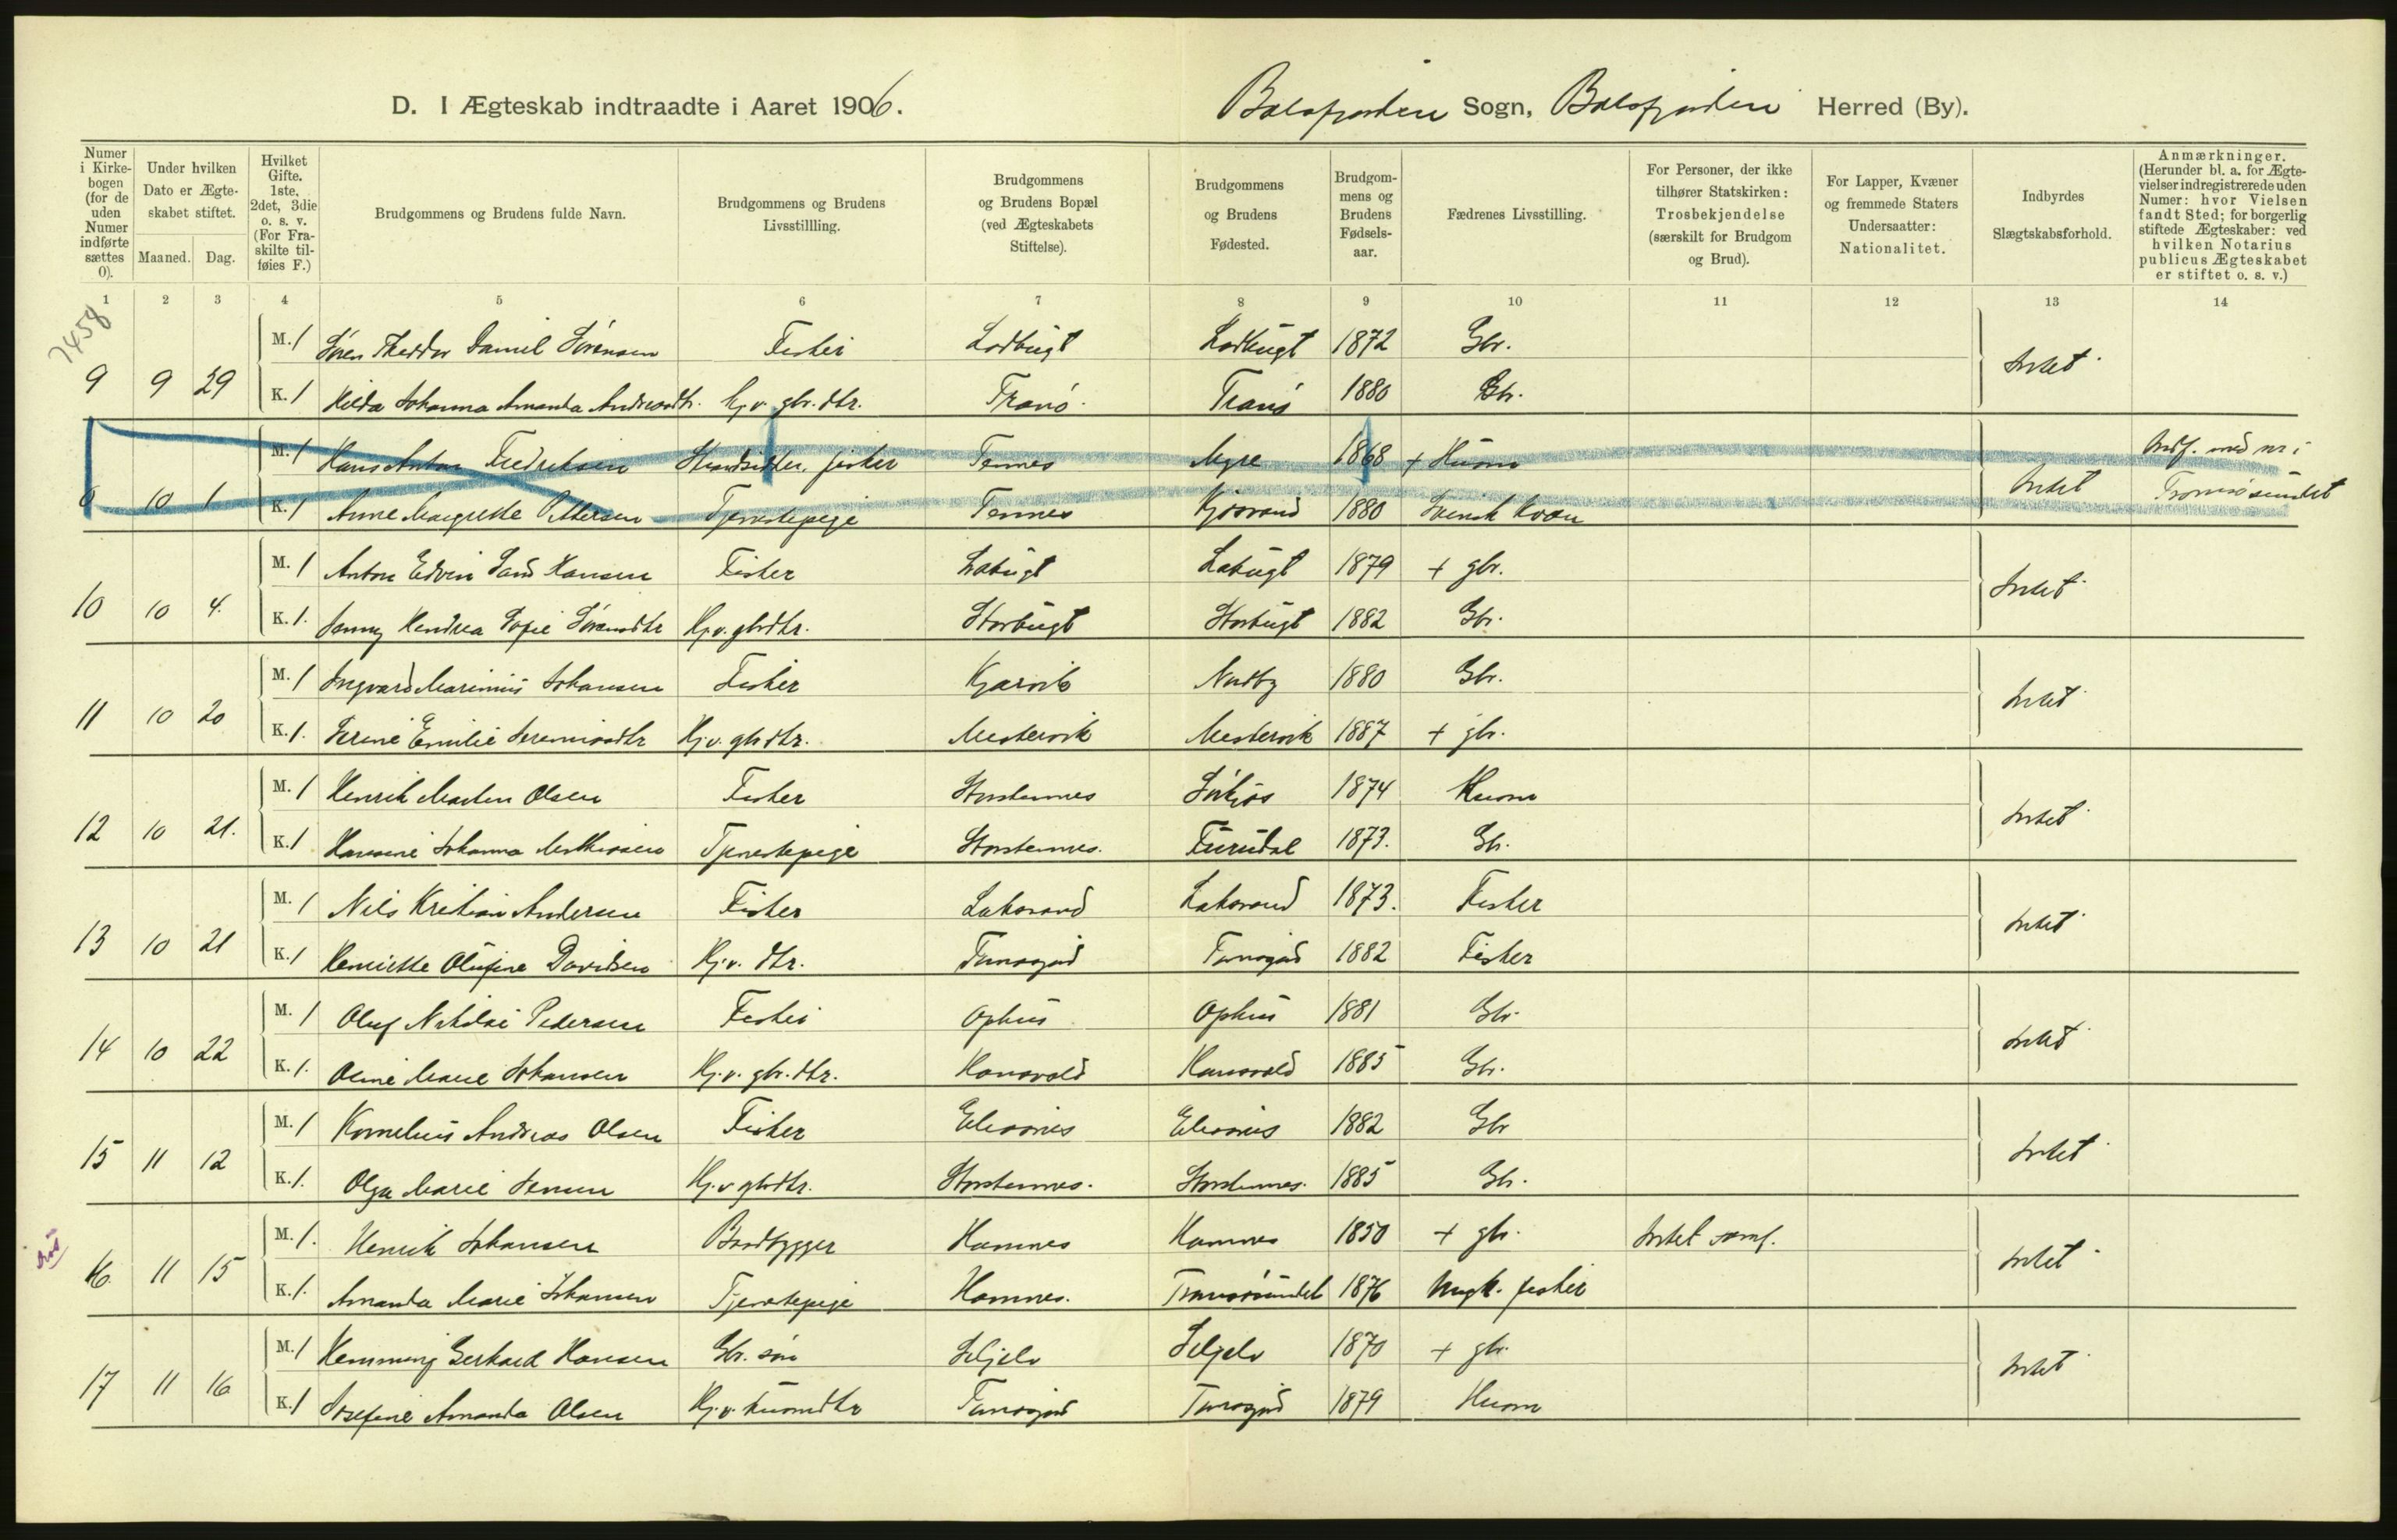 D. I Ægteskab indtraadte i Aaret 1906. Balsfjorden Sogn, Balsfjorden Herred (By).
Numer i Kirke-bogen (for de uden Numer indførte sættes 0).
Under hvilken Dato er Ægte-skabet stiftet.
Maaned. Dag.
Hvilket Gifte. 1ste, 2det, 3die o. s. v. (For Fra-skilte til-føies F.)
Brudgommens og Brudens fulde Navn.
Brudgommens og Brudens Livsstillling.
Brudgommens og Brudens Bopæl (ved Ægteskabets Stiftelse).
Brudgommens og Brudens Fødested.
Brudgom-mens og Brudens Fødsels-aar.
Fædrenes Livsstilling.
For Personer, der ikke tilhører Statskirken: Trosbekjendelse (særskilt for Brudgom og Brud).
For Lapper, Kvæner og fremmede Staters Undersaatter: Nationalitet.
Indbyrdes Slægtskabsforhold.
Anmærkninger. (Herunder bl. a. for Ægte-vielser indregistrerede uden Numer: hvor Vielsen fandt Sted; for borgerlig stiftede Ægteskaber: ved hvilken Notarius publicus Ægteskabet er stiftet o. s. v.)
1 2 3 4 5 6 7 8 9 10 11 12 13 14
7458
M. 1 Sören Theodor Daniel Sörensen Fisker Lodbugt Lodbugt 1872 Gbr. Intet
9 9 29 K. 1 Hilda Johanna Amanda Andreasdtr. Hj. v. gbr. dtr. Tranö Tranö 1880 Gbr.
M. 1 Hans Anton Fredriksen Strandsidder, fisker Tennes Myre 1868 + Husm Indf. med nr i
0 10 1 K. 1 Anne Margrethe Pettersen Tjenestepige Tennes 1880 Svensk Kvæn Intet Tromsösundet
M. 1 Anton Edvin Hansen Fisker Labugt Labugt 1879 + gbr. Intet
10 10 4. K. 1. Jenny Hendrea Sofie Sörensdtr Hj. v. gbrdtr. Storbugt Storbugt 1882 Gbr.
M. 1 Ingvard Marinius Johansen Fisker Kjærvik Nordby 1880 Gbr. Intet
11 10 20 K. 1. Serine Emilie Jeremiasdtr Hj. v. gbrdtr. Mestervik Mestervik 1887 + gbr.
M. 1 Henrik Morten Olsen Fisker Storstennes Sörkjos 1874 Husm Intet
12 10 21. K. 1 Hansine Johanna Mathisen Tjenestepige Storstennes. Furudal 1873. Gb.
M. 1 Nils Kristian Andersen Fisker Laksvand Laksvand 1873. Fisker Intet
13 10 21 K. 1 Henriette Olufine Davidsen Hj. v. dtr. 1882 Fisker
M. 1 Oluf Nikolai Pedersen Fisker Ophus Ophus 1881 Gbr. Intet
14 10 22 K. 1. Marie Johansen Hj. v. gbr. dtr. Hansvold Hansvold 1885 Gbr.
M. 1 Kornelius Andreas Olsen Fisker 1882 Gbr Intet
15 11 12 K. 1. Olga Marie Jensen Hj. v gbrdtr. Storstennes. Storstennes. 1885 Gb.
M. 1. Henrik Johansen Baadbygger Hamnes Hamnes 1850 + gbr. Intet samf. Intet
16. 11 15 K. 1. Amanda Marie Johansen Tjenestepige Hamnes. Tromsösundet 1876 Ungk. fisker
M. 1 Hemming Gerhard Hansen Gbr. sön Seljelv Seljelv 1870 + gbr. Intet
17 11 16 K. 1 Josefine Amanda Olsen Hj. v. husmdtr 1879 Husm